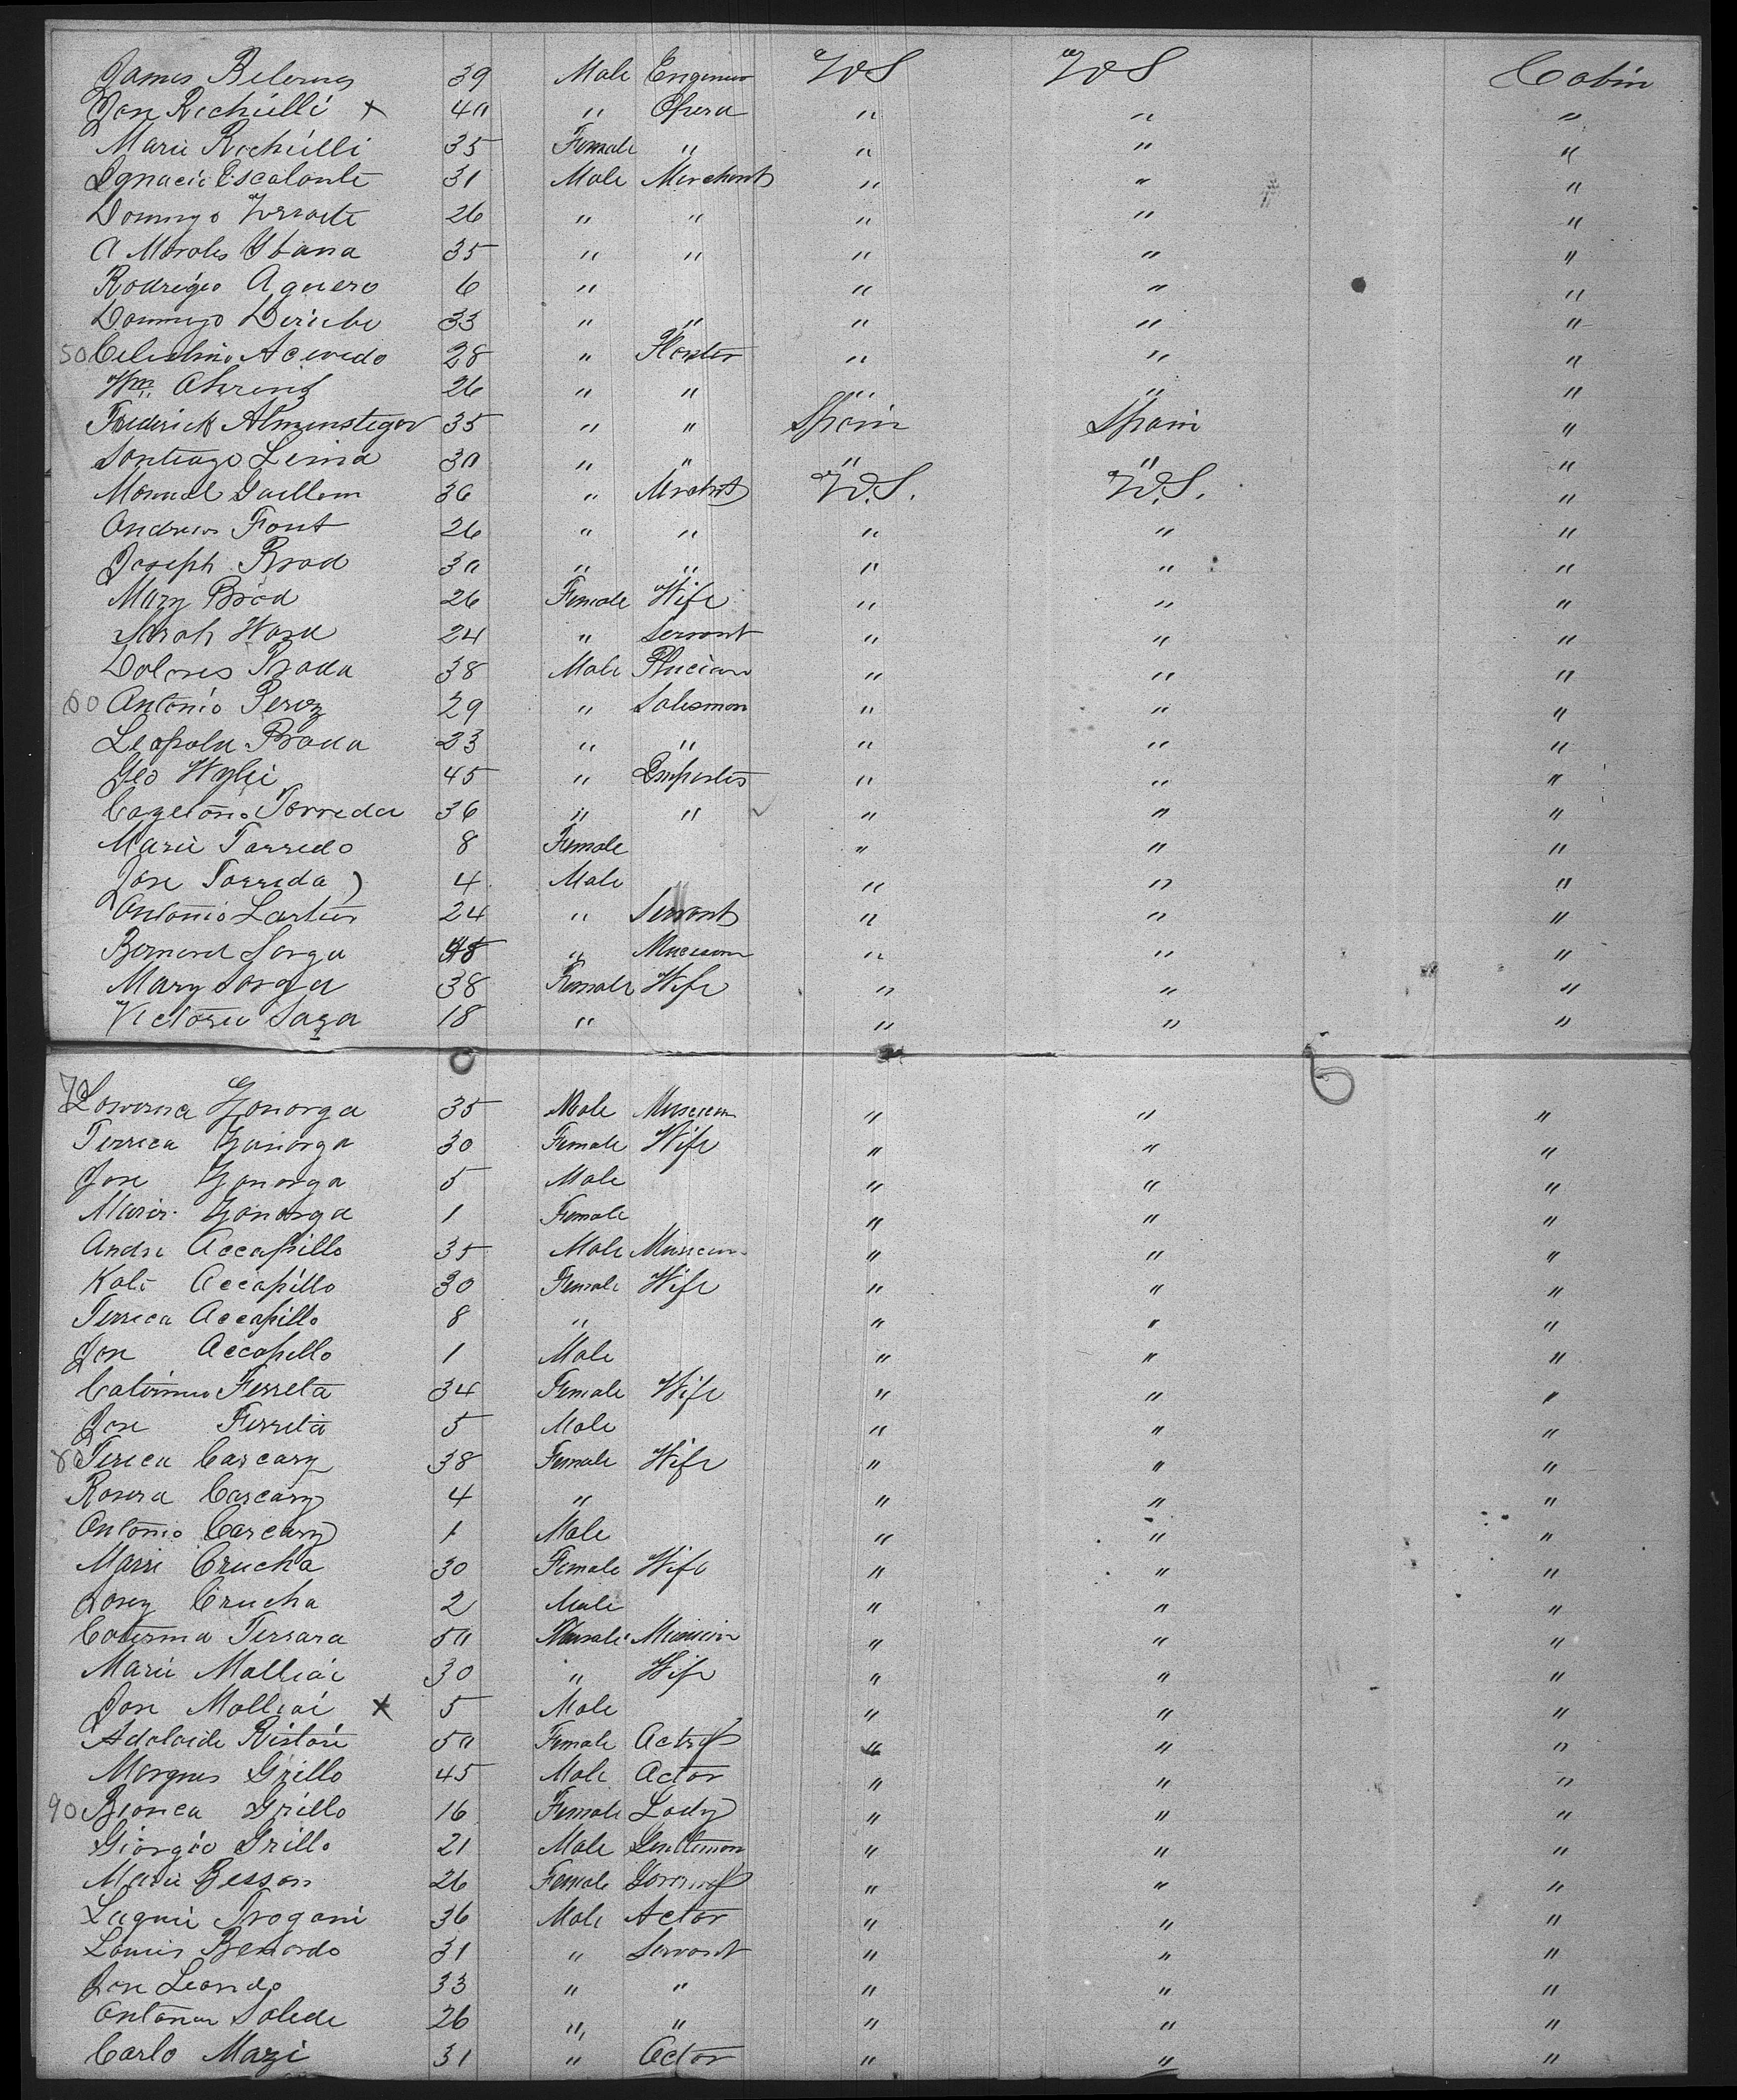 James Belerng 39 Male Engineer U S U S Cabin
Jose Rochielli x 40 " Opera " " "
Marie Rochielli 35 Female " " " "
Ignacio Escalante 31 Male Merchant " " "
Domingo 26 " " " " "
A Morales Ybana 35 " " " " "
Rodrigo Aguero 6 " " " "
Domingo Deriche 33 " " " " "
50 Celestino Acevedo 28 " Planter " " "
Wm. Ahrens 26 " " " " "
Frederick Almenstegor 35 " " Spain Spain "
Santiago Leina 30 " " " " "
Manuel Guillem 36 " Mrchnt U.S. U.S. "
Andrew Font 26 " " " " "
Joseph Brod 30 " " " " "
Mary Brod 26 Female Wife " " "
Sarah Ward 24 " Servant " " "
Dolores Prada 38 Male " " "
60 Antonio Perez 29 " Salesman " " "
Leopold Prada 23 " " " " "
Geo Wylie 45 " Importer " " "
Cayetano Torreda 36 " " " " "
Marie Torredo 8 Female " " "
Jose Torreda ) 4 Male " " "
Antonio Lartier 24 " Servant " " "
Bernard Sorga 48 " Mucican " " "
Mary Sorga 38 Female Wife " " "
Victoria Saga 18 " " " "
6
70 Lowerna Gonorga 35 Male Musician " " "
Terreca Gonorga 30 Female Wife " " "
Jose Gonorga 5 Male " " "
Marie Gonorga 1 Female " " "
Andre Accapillo 35 Male Musician " " "
Kate Accapillo 30 Female Wife " " "
Terreca Accapillo 8 " " " "
Jose Accapillo 1 Male " " "
Caterina Ferreta 34 Female Wife " " "
Jose Ferreta 5 Male " " "
80 Tereca Carcary 38 Female Wife " " "
Rosera Carcary 4 " " " "
Antonio Carcary 1 Male " " "
Marie Crucha 30 Female Wife " " "
Josey Crucha 2 Male " " "
Caterina Terrara 50 Female Musician " " "
Marie Molliai 30 " Wife " " "
Jose Molliai x 5 Male " " "
Adelaide Ristori 50 Female Actress " " "
Marques Grillo 45 Male Actor " " "
90 Bianca Grillo 16 Female Lady " " "
Giorgio Grillo 21 Male Gentleman " " "
Marie Besson 26 Female " " "
Luguie Trogani 36 Male Actor " " "
Louis Benardo 31 " Servant " " "
Jose Leando 33 " " " " "
Antonio Salede 26 " " " " "
Carlo Mazi 31 " Actor " " "